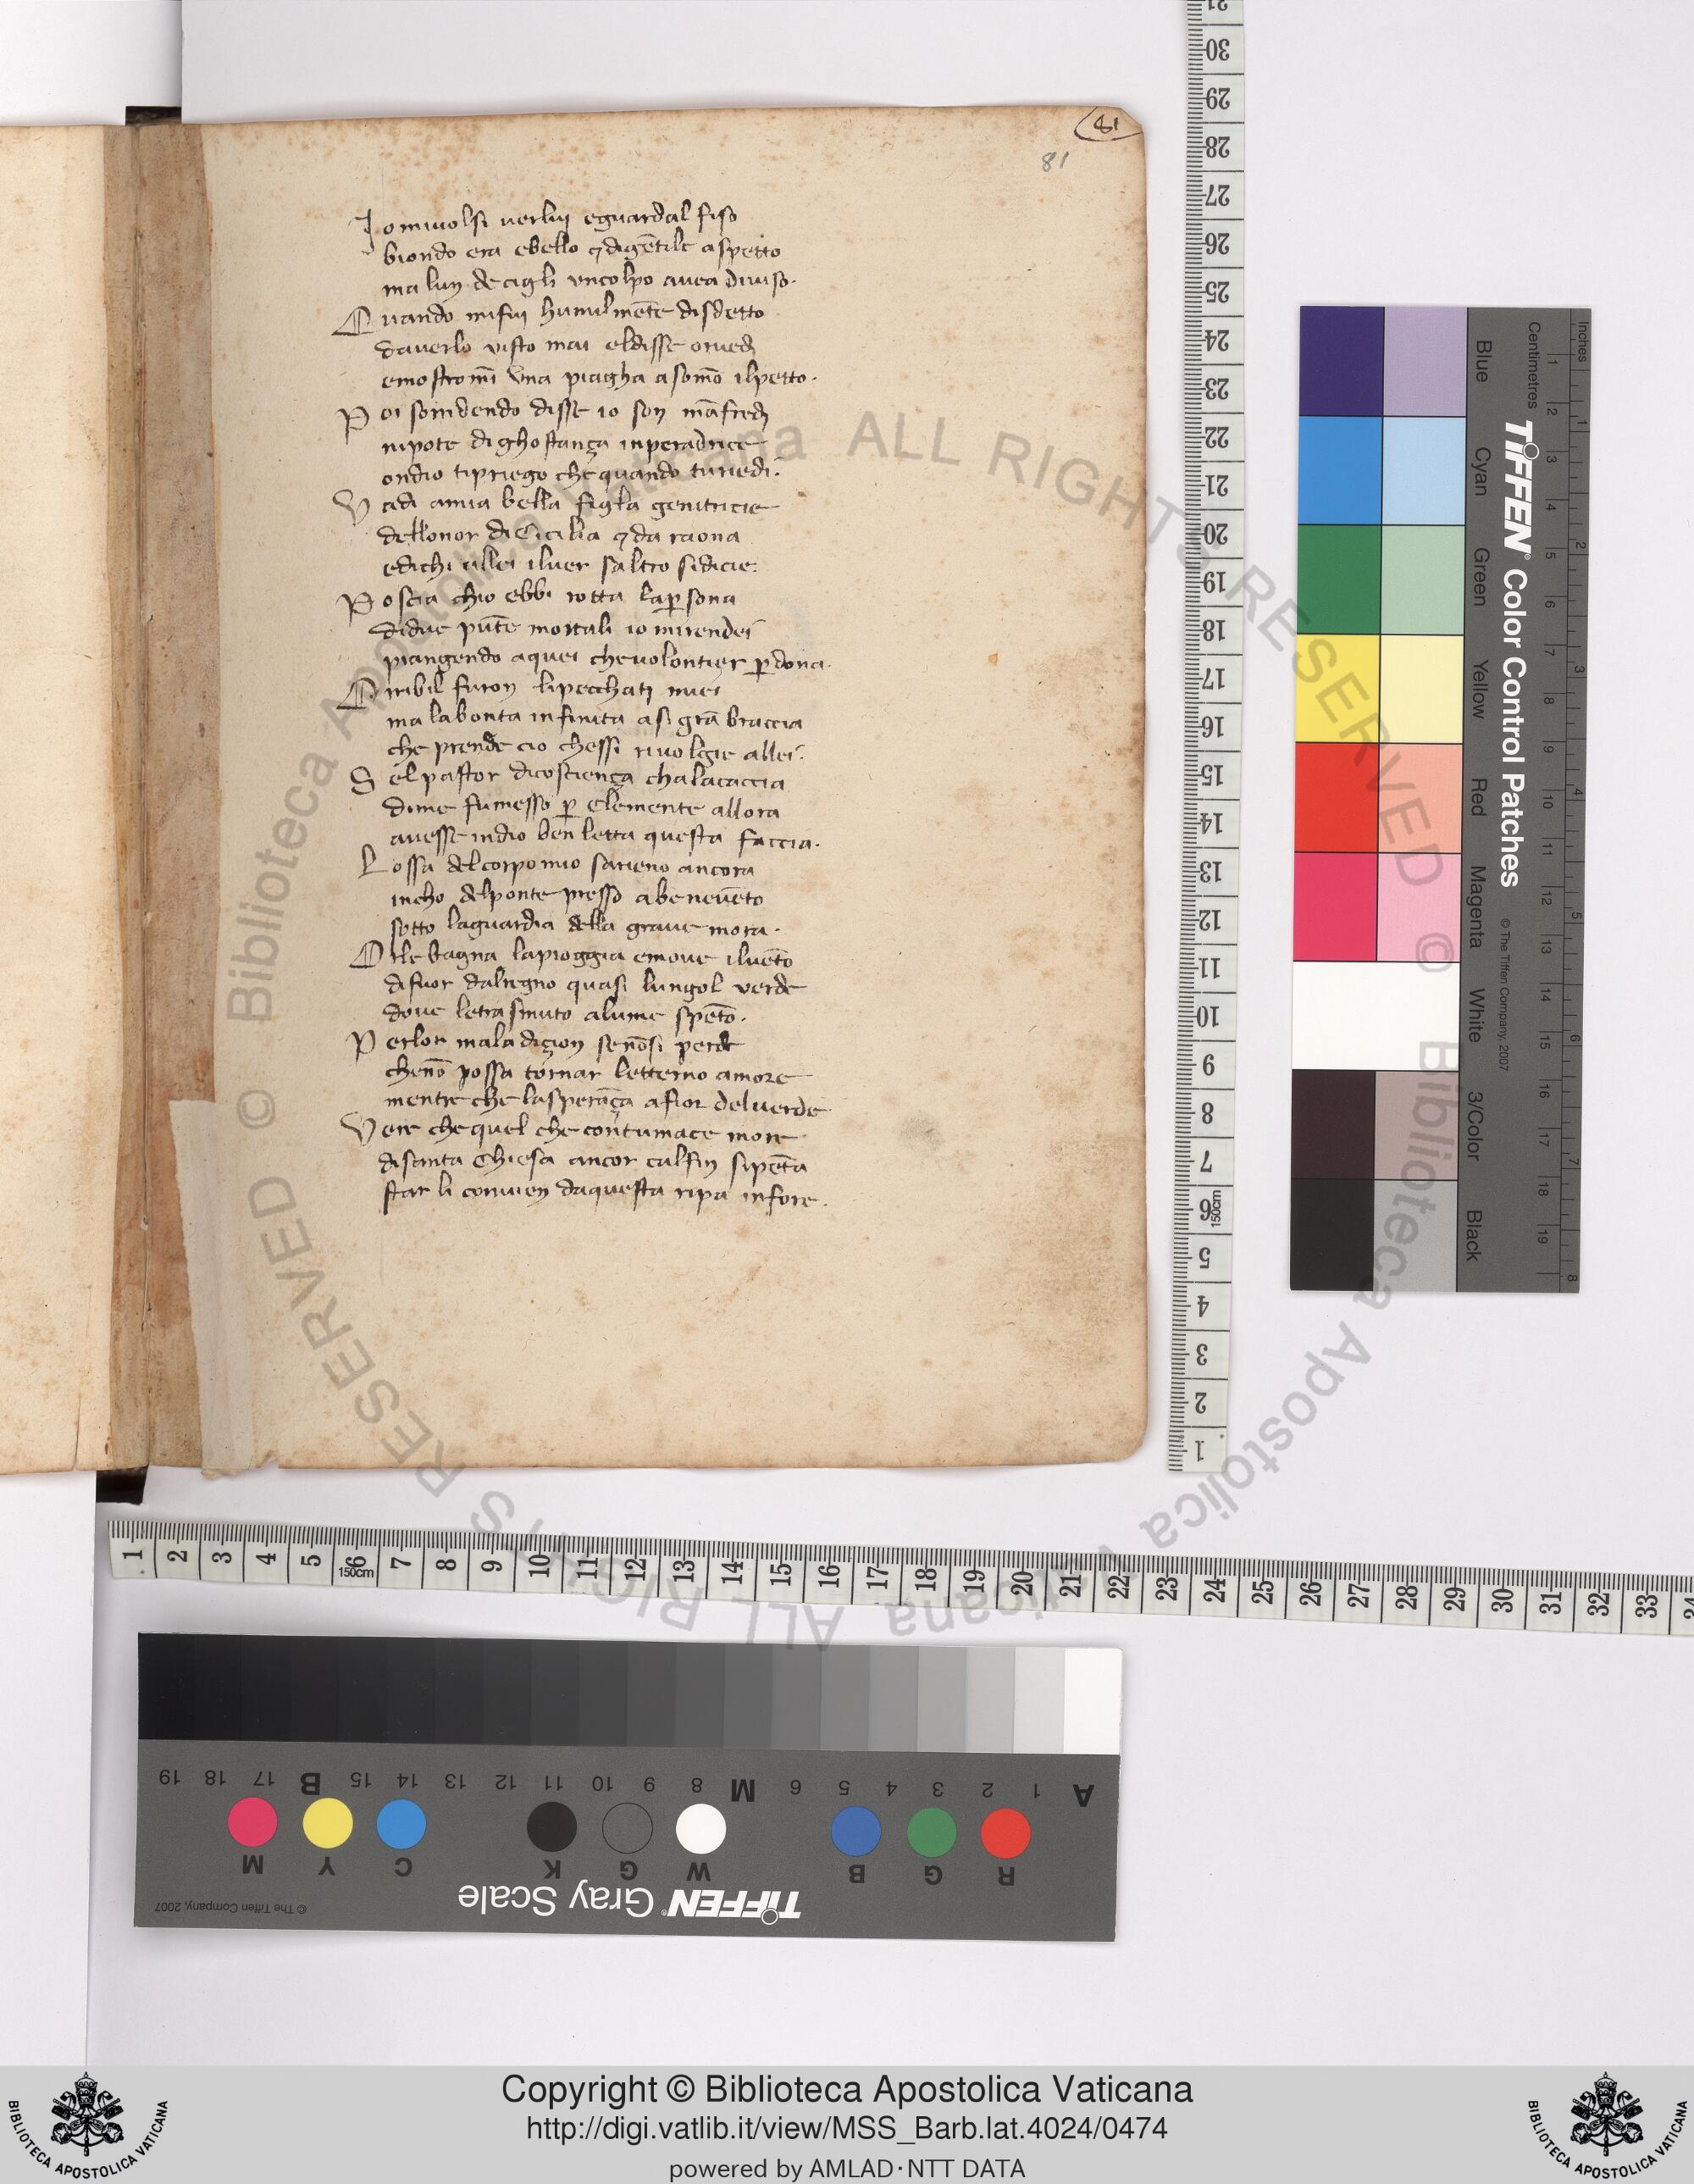 81
81
Io miuolsi uerluj eguardal fiso
biondo era ebello ⁊digẽtile aspetto
ma lun decigli uncolpo auea diuiso.
Quando mifuj humilmẽte disdetto
dauerlo uisto mai eldisse oruedj
emostromi una piagha asomo ilpetto.
Poi soridendo disse io son mãfredj
nipote dighostança inperadrice
ondio tipriego chequando turiedi.
Vadi amia bella figla genitricie
dellonor dicicilia ⁊da raona
edichi allei iluer saltro sidicie.
Poscia chio ebbi rotta lapsona
didue pũte mortali io mirendei
piangendo aquei cheuolontier pdona.
Oribil furon lipecchatj miei
ma labonta infinita a si grã braccia
che prende cio chessi riuolgie allei.
Sel pastor dicosciença chalacaccia
dime fumesso p clemente allora
auesse indio ben letta questa faccia.
Lossa delcorpo mio sarieno ancora
incho delponte presso abeneuẽto
sotto laguardia della graue mora.
Orle bagna lapioggia emoue iluẽto
difuor dalregno quasi lungol uerde
doue letrasmuto alume spẽto.
Perlor maladiçion senõsi perde
chenõ possa tornar letterno amore
mentre che lasperãça afior deluerde
Vere chequel che contumace more
disanta chiesa ancor calfin sipẽta
star li conuien daquesta ripa infore.
Inches
Centimetres
TIFFEN® Color Control Patches
© The Tiffen Company, 2007
Blue
Cyan
Green
Yellow
Red
Magenta
White
3/Color
Black
© Biblioteca Apostolica Vaticana ALL RIGHTS RESERVED
© Biblioteca Apostolica Vaticana ALL RIGHTS RESERVED
1 2 3 4 5 6 7 8 9 10 11 12 13 14 15 16 17 18 19 20 21 22 23 24 25 26 27 28 29 30 31 32 33
150cm
A 1 2 3 4 5 6 M 8 9 10 11 12 13 14 15 B 17 18 19
R G B W G K C Y M
TIFFEN® Gray Scale
© The Tiffen Company, 2007
Copyright © Biblioteca Apostolica Vaticana
http://digi.vatlib.it/view/MSS_Barb.lat.4024/0474
powered by AMLAD·NTT DATA
BIBLIOTECA APOSTOLICA VATICANA
BIBLIOTECA APOSTOLICA VATICANA